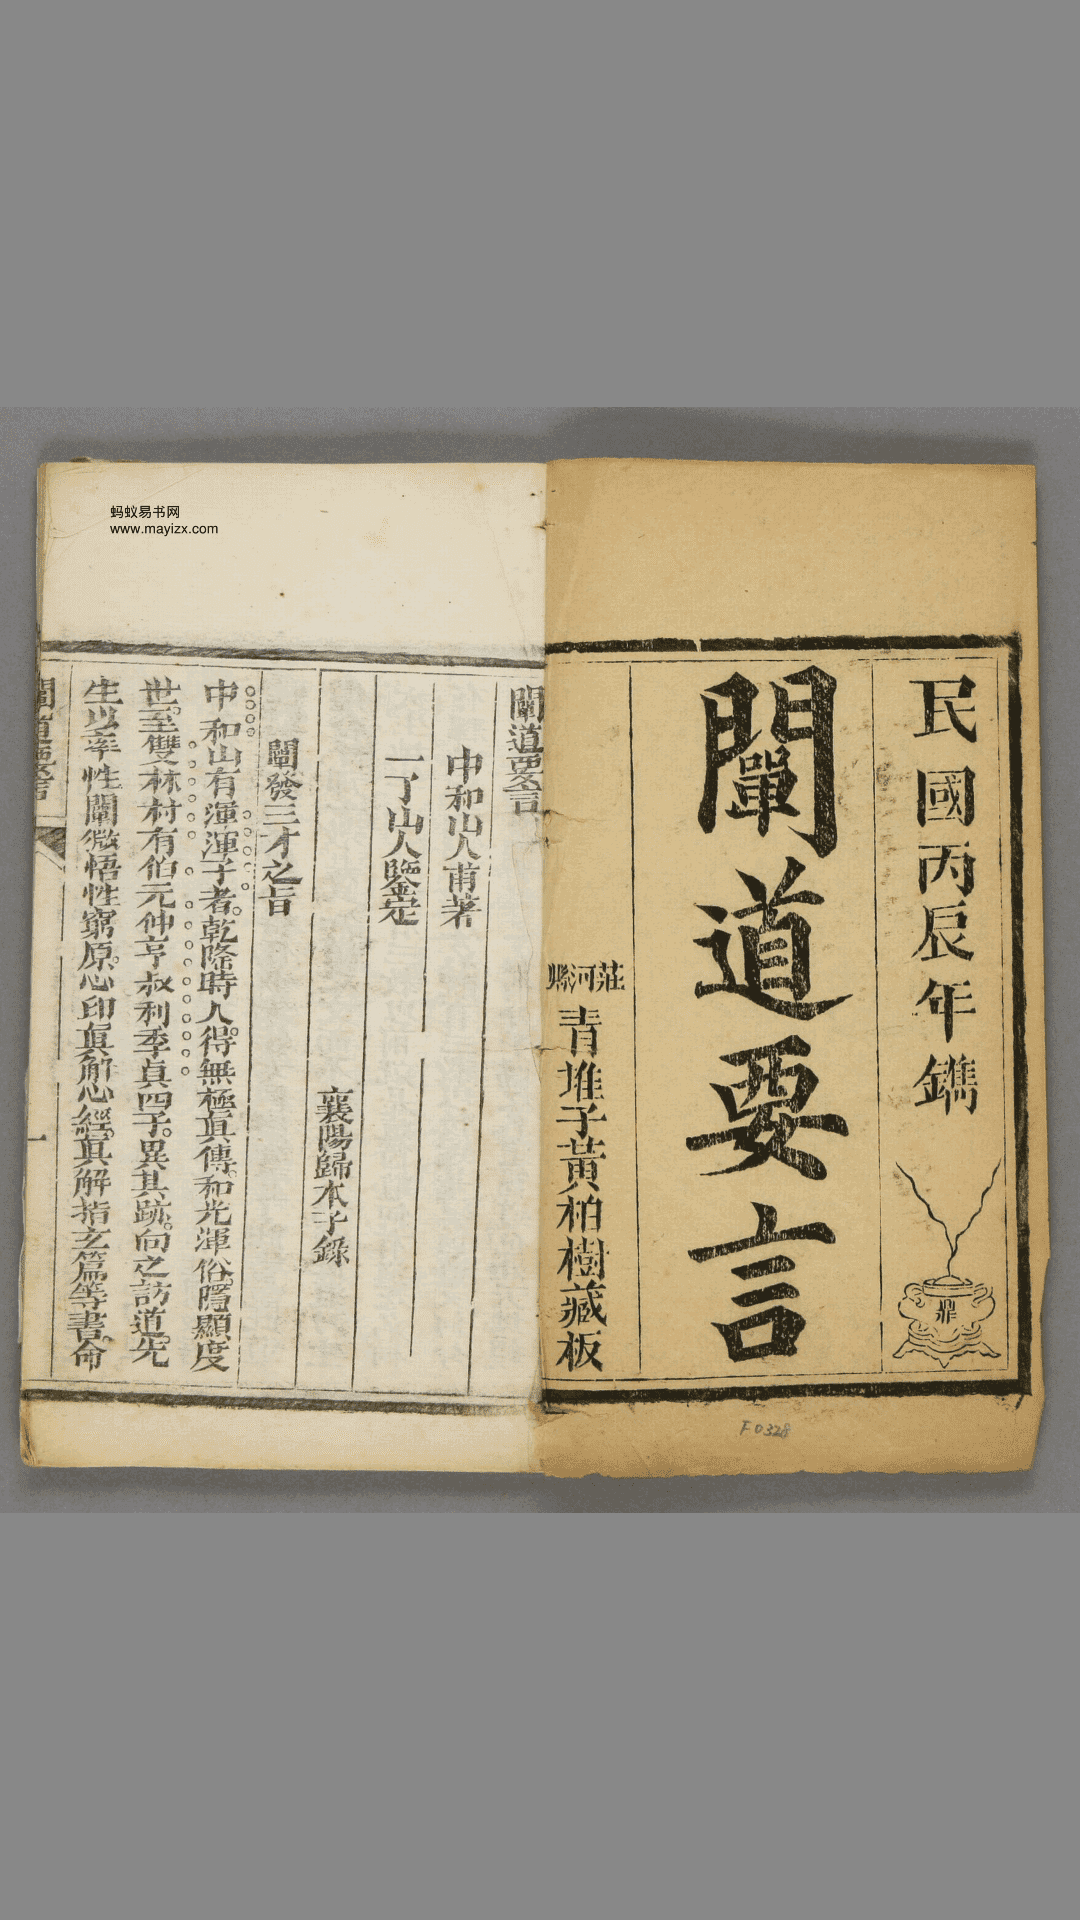 蚂蚁易书网
www.mayizx.com
民國丙辰年鐫
鼎
闡道要言
莊河縣
青堆子黃柏樹藏板
F0328
闡道要言
中和山人甫著
一了山人鑒定
襄陽歸本子錄
闡發三才之旨
中和山有渾渾子者。乾降時人。得無極眞傳。和光渾俗。隱顯度
世。至雙林村有伯元仲亨叔利季貞四子。異其跡。向之訪道。先
生以率性闡微悟性窮原。心印眞解心經。眞解指玄篇等書。命
闡道要言
一